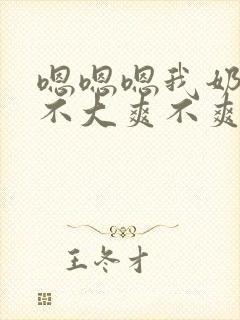 嗯嗯嗯我奶
不大爽不爽
王冬才